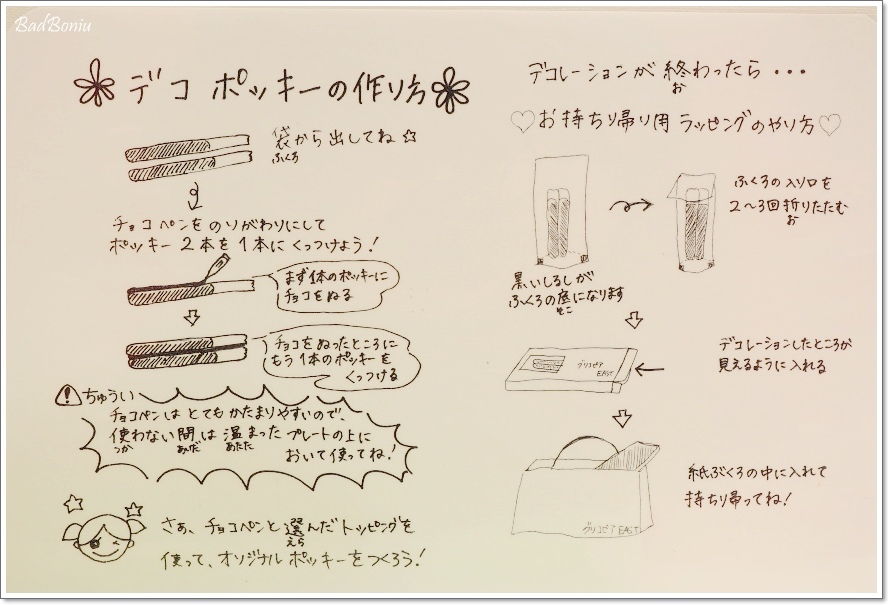 BadBoniu
デコ ポッキーの作り方
袋から出してね☆
ふくろ
チョコペンをのりがわりにして
ポッキー2本を1本にくっつけよう!
まず1本のポッキーに
チョコをぬる
チョコをぬったところに
もう1本のポッキーを
くっつける
ちゅうい
チョコペンはとてもかたまりやすいので、
使わない間は温まったプレートの上に
つか あいだ あたた
おいて使ってね!
さぁ、チョコペンと選んだトッピングを
えら
使って、オリジナルポッキーをつくろう!
デコレーションが終わったら・・・
お
♡お持ち帰り用ラッピングのやり方♡
ふくろの入り口を
2〜3回折りたたむ
お
黒いしるしが
ふくろの底になります
そこ
グリコピア
EAST
デコレーションしたところが
見えるように入れる
グリコピアEAST
紙ぶくろの中に入れて
持ち帰ってね!